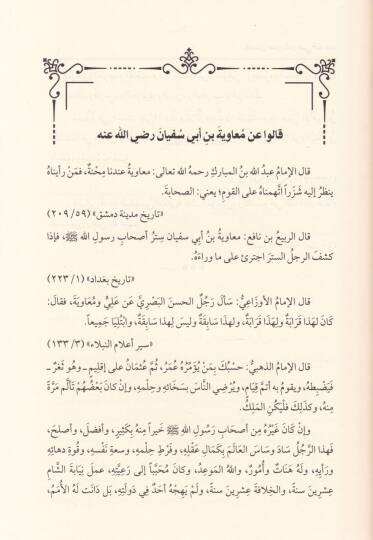 قالوا عن مُعاوية بنِ أبي سُفيانَ رضي الله عنه
قال الإمامُ عبدُ الله بنُ المباركِ رحمهُ الله تعالى: معاويةُ عندنا مِحْنَةٌ، فمَنْ رأيناهُ
ينظُرُ إليه شَزْراً اتَّهمناهُ على القومِ؛ يعني: الصحابةَ.
«تاريخ مدينة دمشق» (٢٠٩/٥٩)
قال الربيعُ بن نافع: معاويةُ بنُ أبي سفيان سِترُ أصحابِ رسولِ الله ﷺ، فإذا
كشفَ الرجلُ السترَ اجترئ على ما وراءَهُ.
«تاريخ بغداد» (٢٢٣/١)
قال الإمام الأوزاعيُّ: سألَ رَجُلٌ الحسنَ البَصْرِيَّ عَن عَلِيٍّ ومُعَاوِيَةَ، فقالَ:
كَانَ لهَذَا قَرَابَةٌ ولِهَذَا قَرَابَةٌ، ولهذا سَابِقَةٌ وليسَ لِهذا سَابِقَةٌ، وابْتُلِيَا جَمِيعاً.
«سير أعلام النبلاء» (١٣٣/٣)
قال الإمام الذهبيُّ: حَسْبُكَ بِمَنْ يُؤَمِّرُهُ عُمَرُ، ثُمَّ عُثمَانُ على إقليمٍ ــ وهُو ثَغْرٌ ــ
فَيَضْبِطُهُ، ويقومُ به أتمَّ قِيَامٍ، ويُرْضِي النَّاسَ بِسَخَائِهِ وحِلْمِهِ، وإنْ كانَ بَعْضُهُمْ تَأَلَّمَ مَرَّةً
مِنْهُ، وكذلكَ فَلْيَكُنِ المَلِكُ.
وإِنْ كَانَ غَيْرُهُ مِن أصحَابِ رَسُولِ اللهِ ﷺ خَيراً مِنهُ بِكَثِيرٍ، وأفضلَ، وأصلحَ،
فهذا الرَّجُلُ سَادَ وسَاسَ العَالَمَ بِكَمَالِ عَقْلِهِ، وفَرْطِ حِلْمِهِ، وسعةِ نَفْسِه، وقُوةِ دهائِهِ
ورَأيِهِ، ولَهُ هَنَاتٌ وأُمُورٌ، واللهُ المَوعِدُ، وكانَ مُحَبَّباً إلى رَعِيَّتِهِ، عملَ نِيَابَةَ الشَّامِ
عِشْرِينَ سنةً، والخِلَافَةَ عِشْرِينَ سنةً، ولَمْ يَهِجْهُ أحَدٌ في دَولَتِهِ، بل دَانَت لَهُ الأُمَمُ،